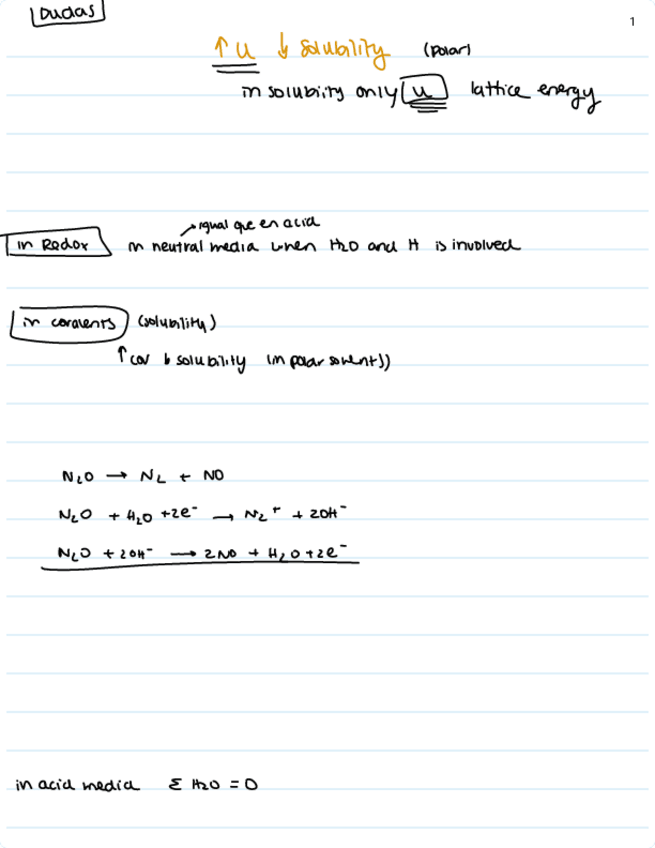 Dudas
1
↑ U ↓ solubility (polar)
in solubility only U lattice energy
→ igual que en acid
in Redox in neutral media when H2O and H is involved
in covalents (solubility)
↑ cov ↓ solubility (in polar solvents))
N2O → N2 + NO
N2O + H2O + 2e⁻ → N2 + + 2OH⁻
N2O + 2OH⁻ → 2NO + H2O + 2e⁻
in acid media Σ H2O = 0